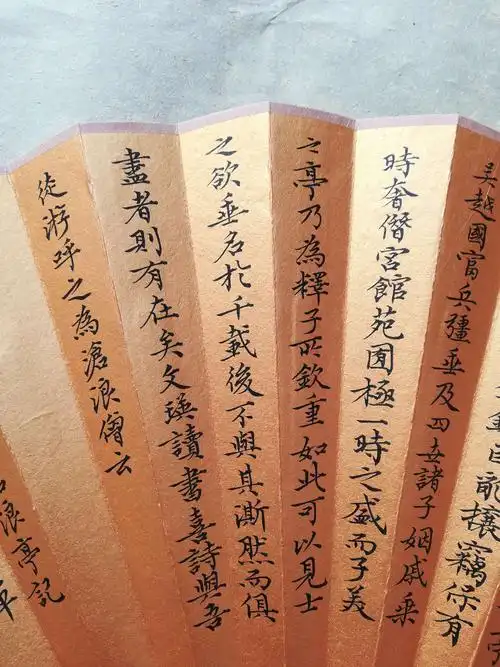 亂攘竊保有
吳越國富兵彊垂及四世諸子姻戚乘
時奢僭宮館苑囿極一時之盛而子美
之亭乃為釋子所欽重如此可以見士
之欲垂名於千載後不與其澌然而俱
盡者則有在矣文瑛讀書喜詩與吾
徒游呼之為滄浪僧云
浪亭記